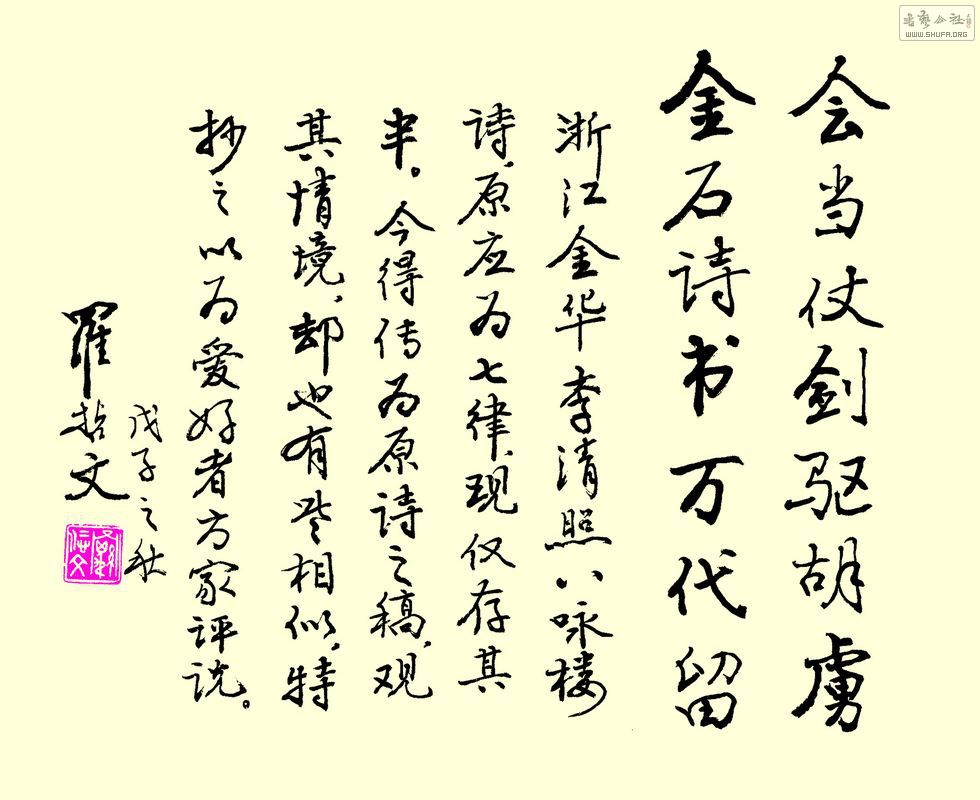 会当仗剑驱胡虏
金石诗书万代留
浙江金华李清照八咏楼
诗，原应为七律，现仅存其
半。今得传为原诗之稿，观
其情境，却也有些相似，特
抄之以为爱好者方家评说。
戊子之秋
羅哲文
WWW.SHUFA.ORG